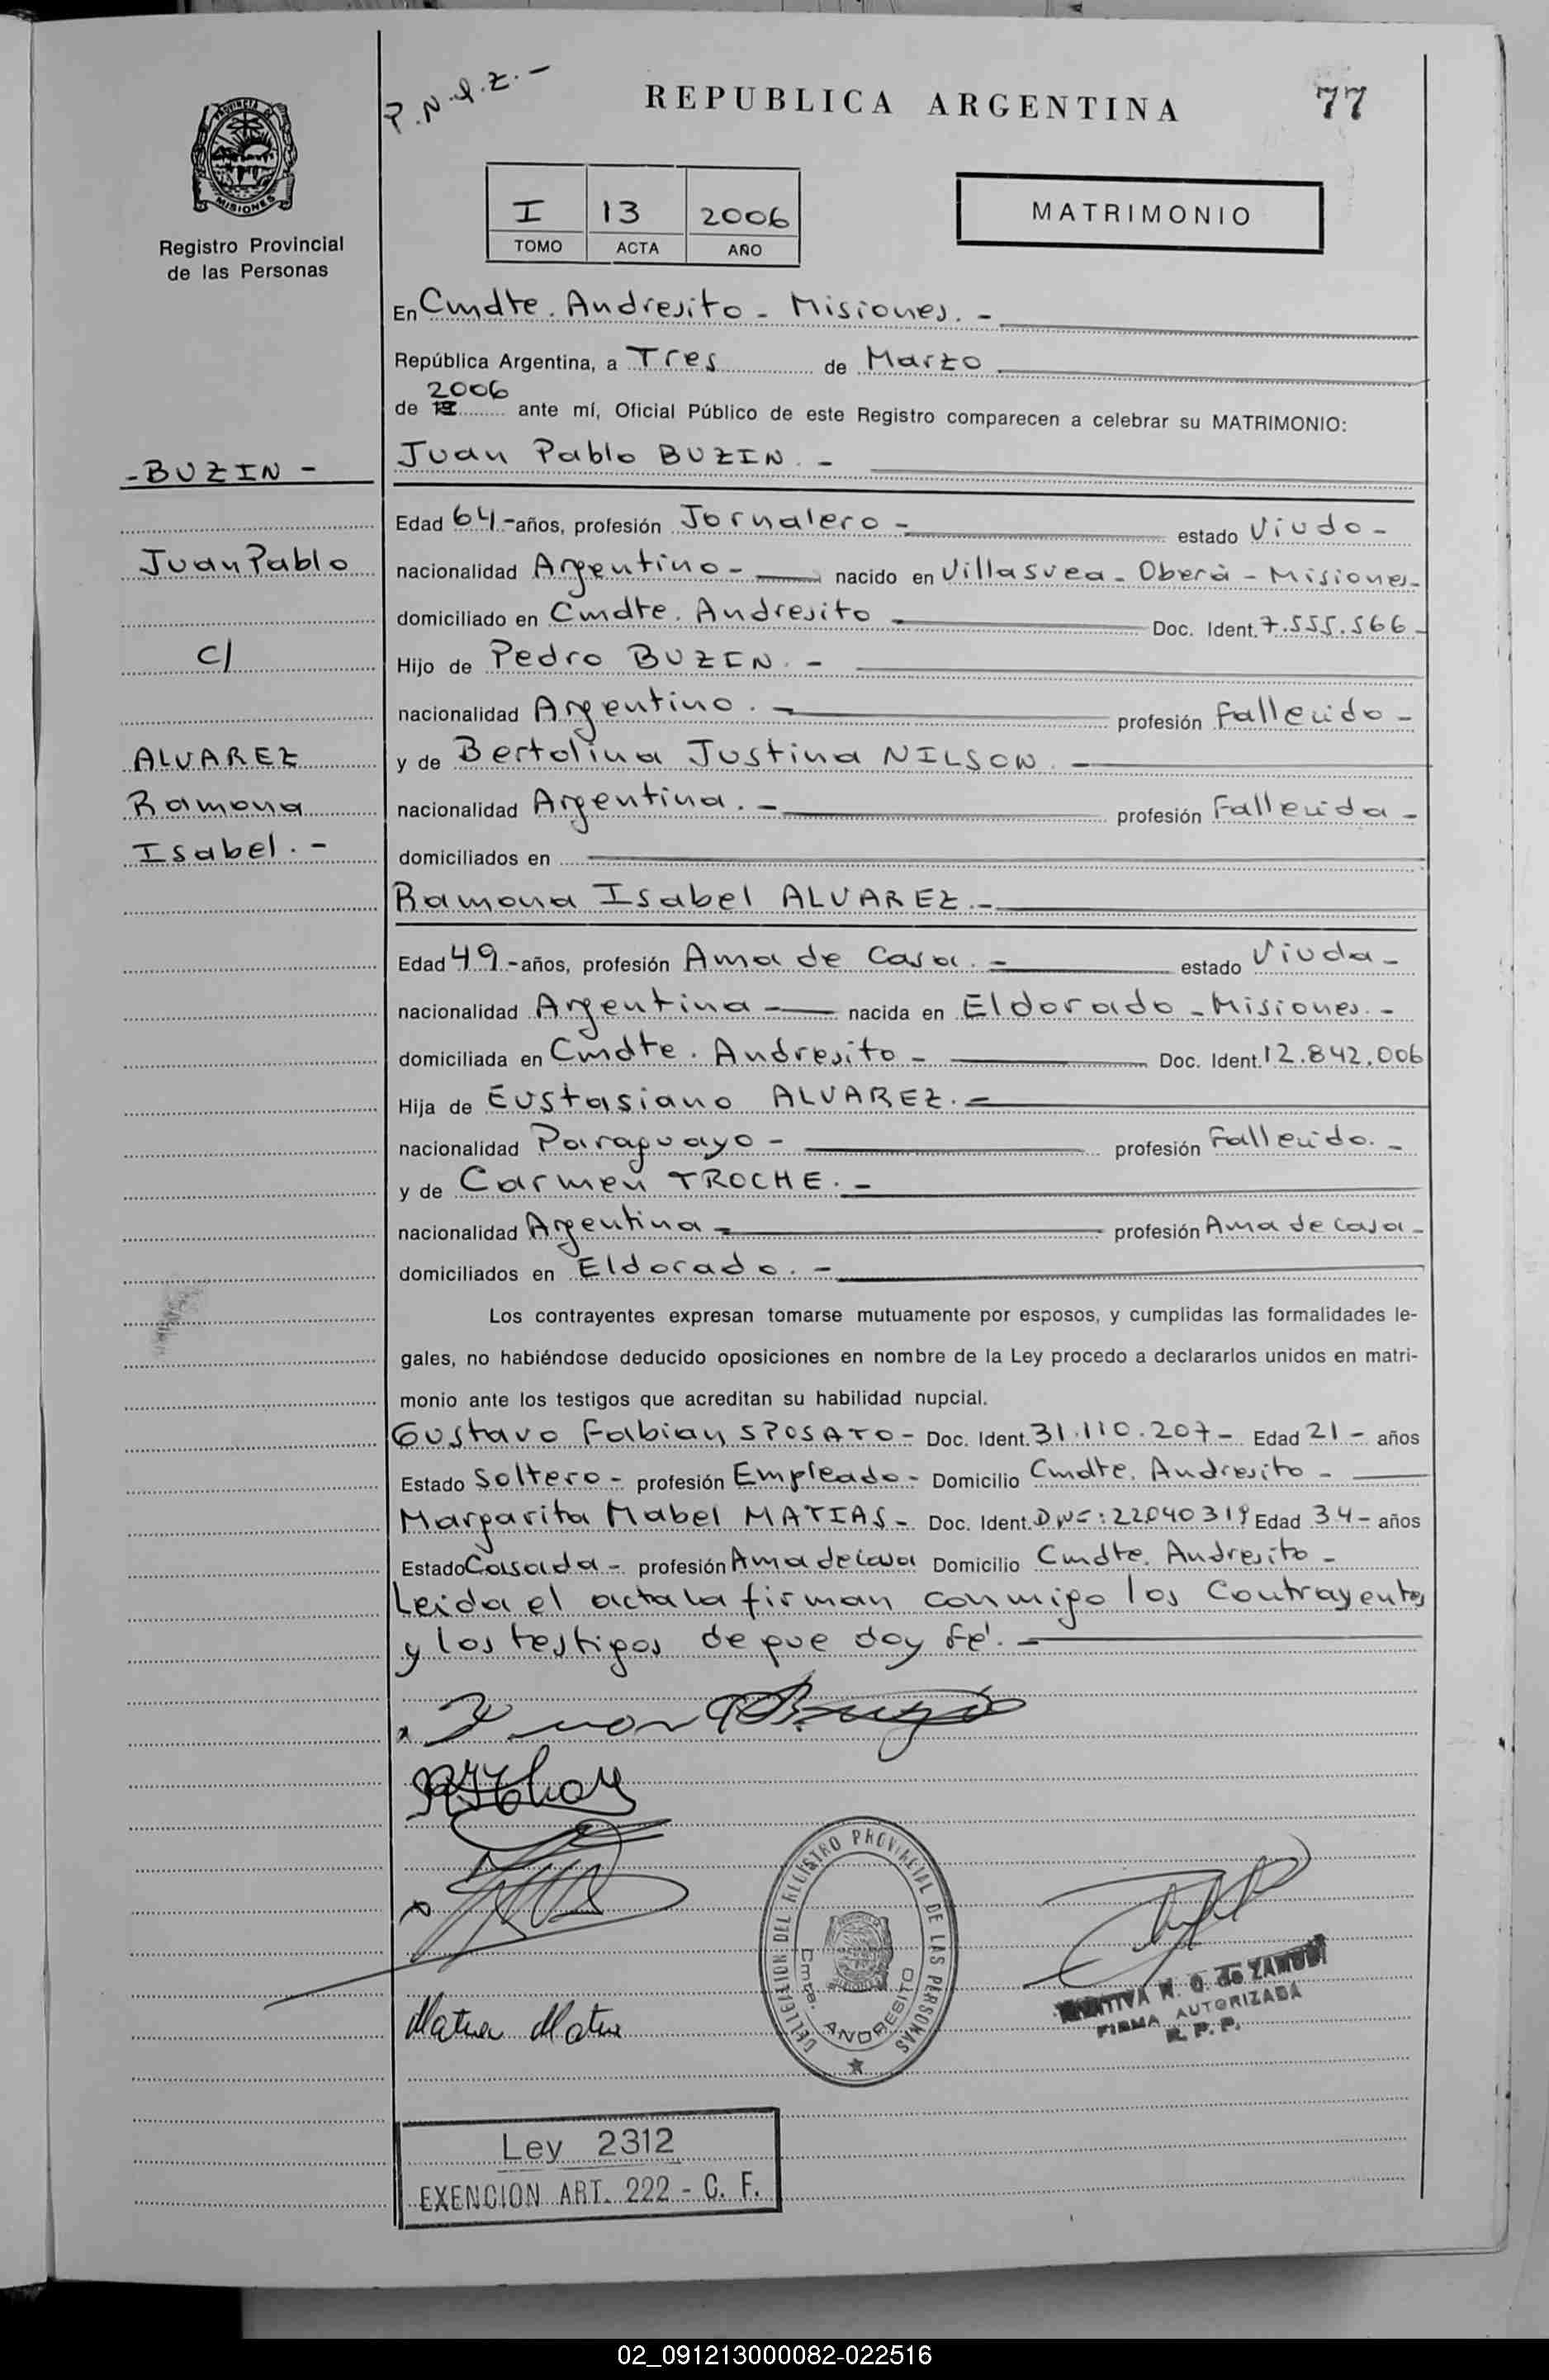 P.N.Q.Z.-
REPUBLICA ARGENTINA
77
PROVINCIA DE
MISIONES
Registro Provincial
de las Personas
I 13 2006
TOMO ACTA AÑO
MATRIMONIO
En Cmdte. Andresito - Misiones. -
República Argentina, a Tres de Marzo
2006
de ante mí, Oficial Público de este Registro comparecen a celebrar su MATRIMONIO:
- BUZIN -
Juan Pablo BUZIN. -
Edad 64-años, profesión Jornalero - estado Viudo -
Juan Pablo
nacionalidad Argentino - nacido en Villa Svea - Oberá - Misiones-
domiciliado en Cmdte. Andresito Doc. Ident. 7.555.566-
C/
Hijo de Pedro BUZIN. -
nacionalidad Argentino. - profesión Fallecido -
ALVAREZ
y de Bertolina Justina NILSON. -
Ramona
nacionalidad Argentina. - profesión Fallecida -
Isabel. -
domiciliados en
Ramona Isabel ALVAREZ. -
Edad 49-años, profesión Ama de Casa. - estado Viuda -
nacionalidad Argentina - nacida en Eldorado - Misiones. -
domiciliada en Cmdte. Andresito - Doc. Ident. 12.842.006
Hija de Eustasiano ALVAREZ. -
nacionalidad Paraguayo - profesión Fallecido. -
y de Carmen TROCHE. -
nacionalidad Argentina - profesión Ama de casa -
domiciliados en Eldorado. -
Los contrayentes expresan tomarse mutuamente por esposos, y cumplidas las formalidades le-
gales, no habiéndose deducido oposiciones en nombre de la Ley procedo a declararlos unidos en matri-
monio ante los testigos que acreditan su habilidad nupcial.
Gustavo Fabian SPOSATO - Doc. Ident. 31.110.207 - Edad 21 - años
Estado Soltero - profesión Empleado - Domicilio Cmdte. Andresito -
Margarita Mabel MATIAS - Doc. Ident. DNI: 22040319 Edad 34 - años
Estado Casada - profesión Ama de casa Domicilio Cmdte. Andresito -
Leida el acta la firman conmigo los Contrayentes
y los testigos de que doy fé. -
DELEGACION DEL REGISTRO PROVINCIAL DE LAS PERSONAS
Cmte. ANDRESITO
N. G. de ZAMUDI
FIRMA AUTORIZADA
R. P. P.
Ley 2312
EXENCION ART. 222 - C. F.
02_091213000082-022516